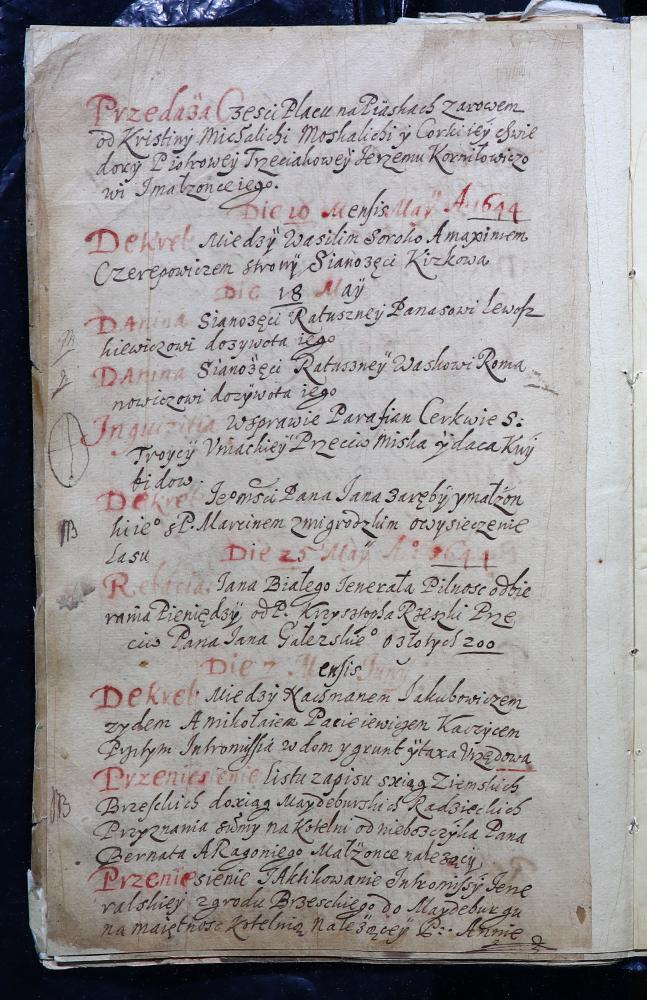 Przedaża Części Placu na Piaskach zarowem
od Kristiny Michalichi Moskalichi y Corki iey chwie
dory Piotrowey Trzeciakowey Jerzemu Korniłowiczo
wi J małżonce iego.
Die 10 Mensis Maÿ A: 1644
Dekret Miedzÿ Wasilim Soroko A maximem
Czerepowiczem strony Sianożęci Kizkowa
Die 18 Maÿ
DAnina Sianożęci Ratuszney Panasowi Lewosz
kiewiczowi dożywota iego
DAnina Sianożęci Ratuszneÿ Waskowi Roma
nowiczowi dożywota iego
Inquizitia w sprawie Parafian Cerkwie S:
Troycy Vniackieÿ Przeciw Miska ÿ daca Kuy
bidow.
NB
Dekret Jeomści Pana Jana Zaręby y małżon
kieo s P. Marcinem Zmigrodzkim o wysieczenie
Lasu
Die 25 Maÿ Ao 1644
Relacia Jana Białego Jenerała Pilnosc odbie
rania Pieniędzy od P. Krzysztopha Rzeszki Prze
ciw Pana Jana Galezskieo o złotych 200
Die 7 Mensis Juny
Dekret Miedzy Kacsmanem Jakubowiczem
zydem A mikołaiem Pacieiewiczem Kaczycem
Pyrtym Intromissia w dom y grunt ÿ taxa Vrzędowa
NB
Przeniesienie listu zapisu s xiąg Ziemskich
Brzeskich do xiąg Maydeburskich Radzieckich
Przyznania summy na Kotelni od nieboszczyka Pana
Bernata A Ragoniego Małżonce należący
Przeniesienie JAktikowanie Intromissÿ Jene
ralskiey z grodu Brzeskiego do Maydeburgu
na maiętnosc Kotelnią Należącey P:: Annie